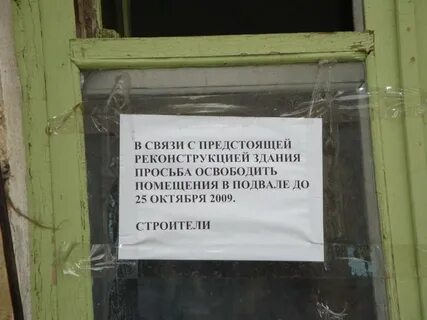 В СВЯЗИ С ПРЕДСТОЯЩЕЙ
РЕКОНСТРУКЦИЕЙ ЗДАНИЯ
ПРОСЬБА ОСВОБОДИТЬ
ПОМЕЩЕНИЯ В ПОДВАЛЕ ДО
25 ОКТЯБРЯ 2009.
СТРОИТЕЛИ